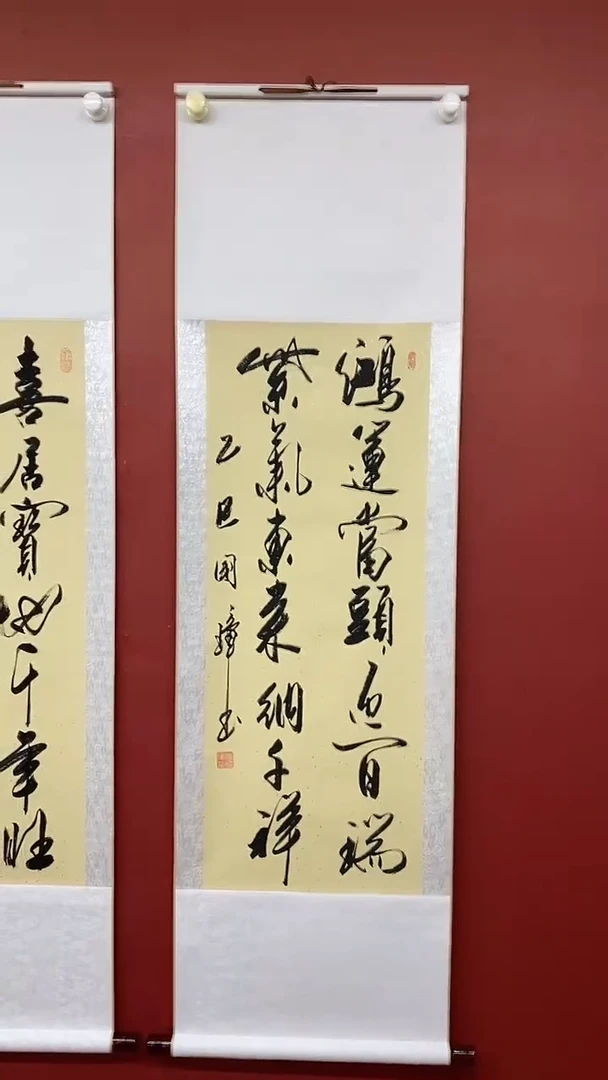 鴻運當頭迎百瑞
紫氣東來納千祥
乙巳國華書
喜居寶地千年旺